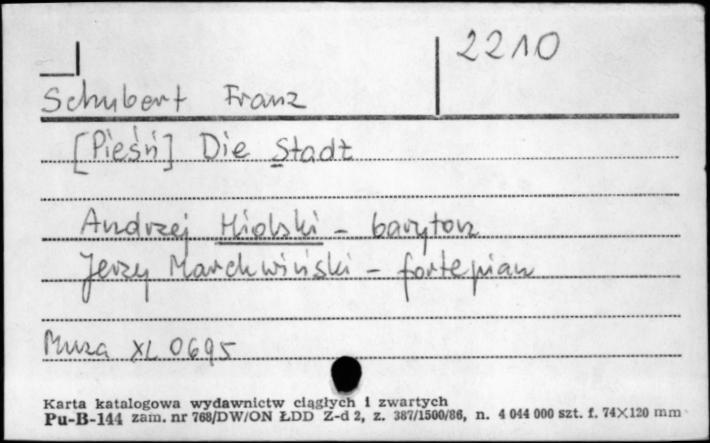 2210
Schubert Franz
[Pieśń] Die Stadt
Andrzej Hiolski - baryton
Jerzy Marchwiński - fortepian
Muza XL 0695
Karta katalogowa wydawnictw ciągłych i zwartych
Pu-B-144 zam. nr 768/DW/ON ŁDD Z-d 2, z. 387/1500/86, n. 4 044 000 szt. f. 74×120 mm